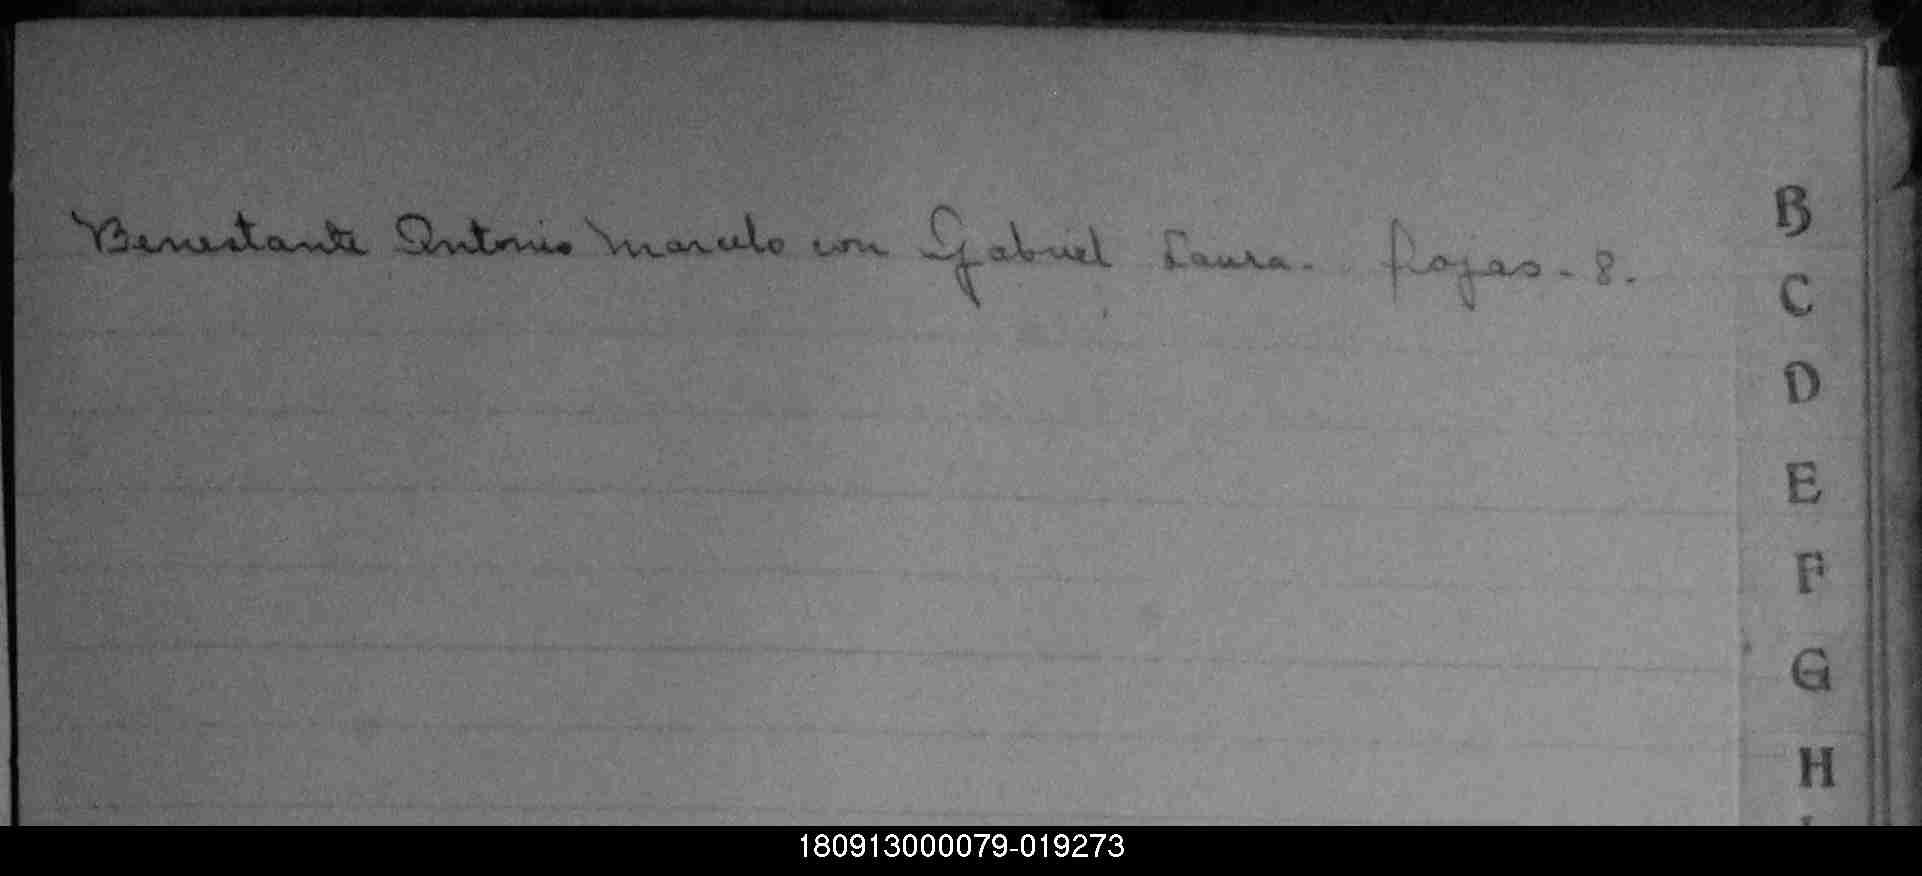 Benestante Antonio Marcelo con Gabriel Laura. Fojas - 8.
B
C
D
E
F
G
H
180913000079-019273